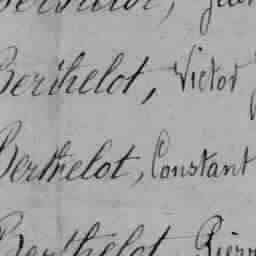 Berthelot,
Berthelot, Victor
Berthelot, Constant
Berthelot, Pierr